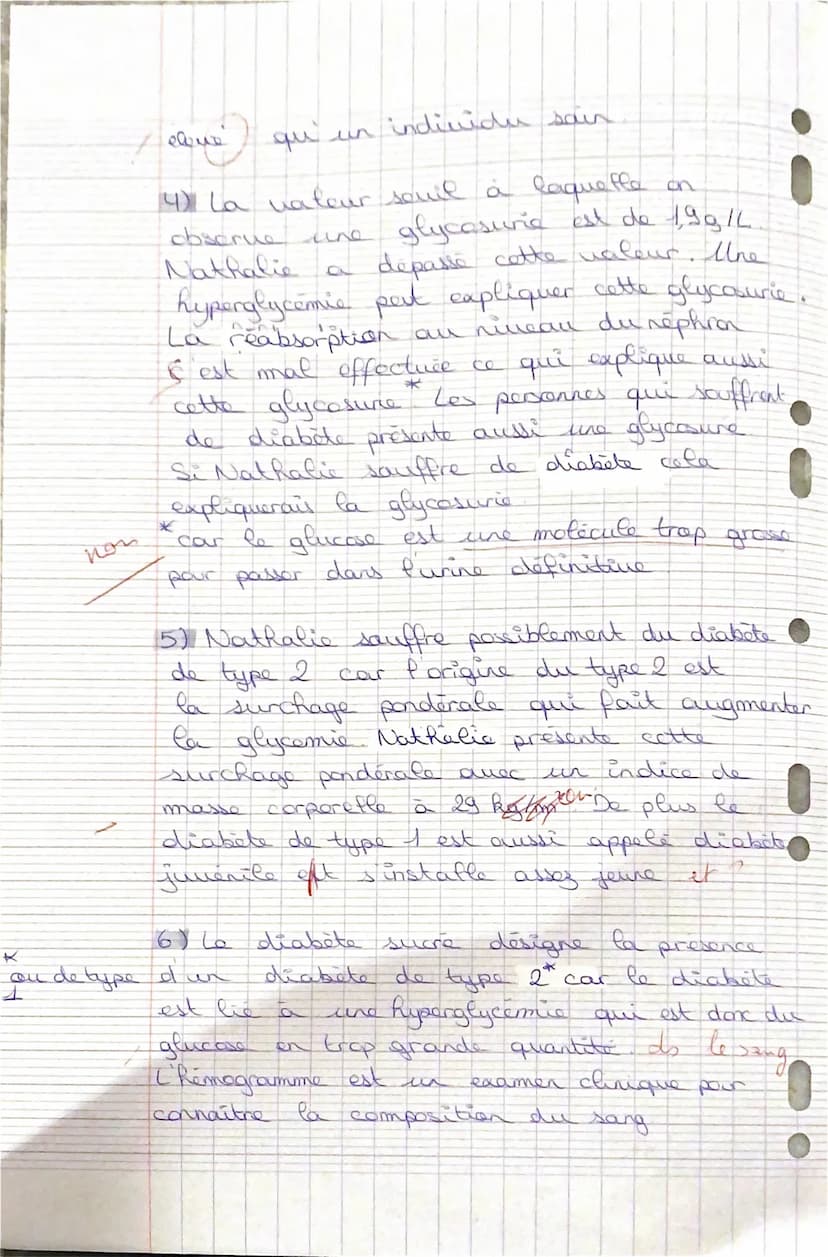 élevé qu'un individu sain
4) La valeur seuil à laquelle on
observe une glycosurie est de 1,9g/L.
Nathalie a dépassé cette valeur. Une
hyperglycémie peut expliquer cette glycosurie.
La réabsorption au niveau du néphron
s'est mal effectuée ce qui explique aussi
cette glycosurie* Les personnes qui souffrent
de diabète présente aussi une glycosurie
Si Nathalie souffre de diabète cela
expliquerais la glycosurie
* car le glucose est une molécule trop grosse
non
pour passer dans l'urine définitive
5) Nathalie souffre possiblement du diabète
de type 2 car l'origine du type 2 est
la surchage pondérale qui fait augmenter
la glycemie. Nathalie présente cette
surchage pondérale avec un indice de
masse corporelle à 29 De plus le
diabète de type 1 est aussi appelé diabète
juvénile s'installe assez jeune et ?
6) Le diabète sucré désigne la présence
* ou de type 1
d'un diabète de type 2* car le diabète
est lié à une hyperglycémie qui est donc du
glucose en trop grande quantité. ds le sang
L'hémogramme est un examen clinique pour
connaître la composition du sang